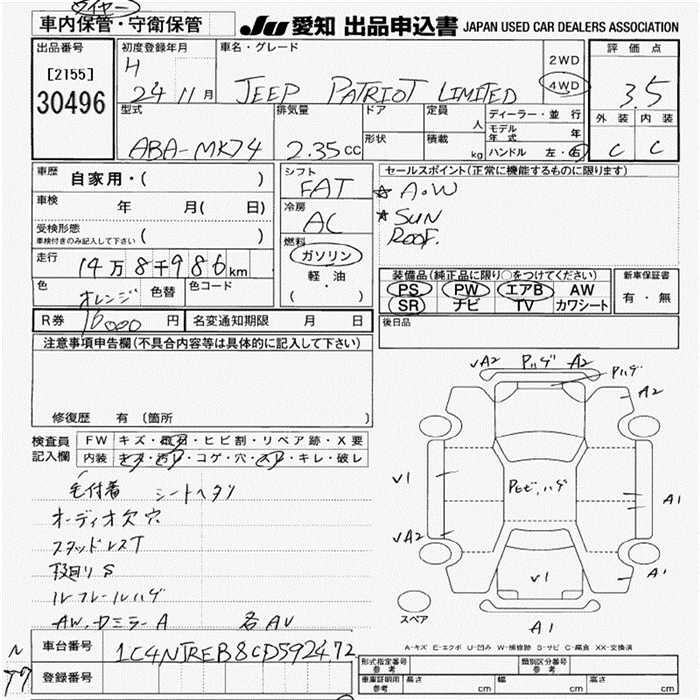 タイヤ
車内保管・守衛保管
JU 愛知 出品申込書 JAPAN USED CAR DEALERS ASSOCIATION
出品番号
[2155]
30496
初度登録年月
H
24 11 月
車名・グレード
JEEP PATRIOT LIMITED
2WD
4WD
評価点
3.5
外装 内装
C C
型式
ABA-MK74
排気量
2.35 CC
ドア
形状
定員
人
積載
kg
ディーラー・並行
モデル年式 年
ハンドル 左・右
車歴 自家用・( )
車検 年 月( 日)
受検形態
車検付きのみ記入して下さい ( )
走行 14万8千986km
色 オレンジ 色替 色コード
シフト
FAT
冷房
AC
燃料
ガソリン
軽・油
( )
セールスポイント(正常に機能するものに限ります)
★ A・W
★ SUN
ROOF.
装備品(純正品に限り○をつけてください)
PS PW エアB AW
SR ナビ TV カワシート
新車保証書
有・無
R券 16000 円 名変通知期限 月 日
後日品
注意事項申告欄(不具合内容等は具体的に記入して下さい)
修復歴 有 (箇所
検査員
記入欄
FW キズ・飛石・ヒビ割・リペア跡・X要
内装 キズ・汚レ・コゲ・穴・スリ・キレ・破レ
毛付着 シートヘタリ
オーディオ欠 穴
スタッドレスT
段回り S
ルーフレールハゲ
AW、ドミラー A 各AV
車台番号 1C4NJREB8CD592472
登録番号
VA2 Pハゲ A2
Pハゲ
A2
V1
Pヒビ、ハゲ
A1
VA2
V1
A1
スペア
A1
A-キズ E-エクボ U-凹み W-補修跡 S-サビ C-腐食 XX-交換済
形式指定番号
参考
類別区分番号
参考
車庫証明用
参考
長さ cm 幅 cm 高さ cm